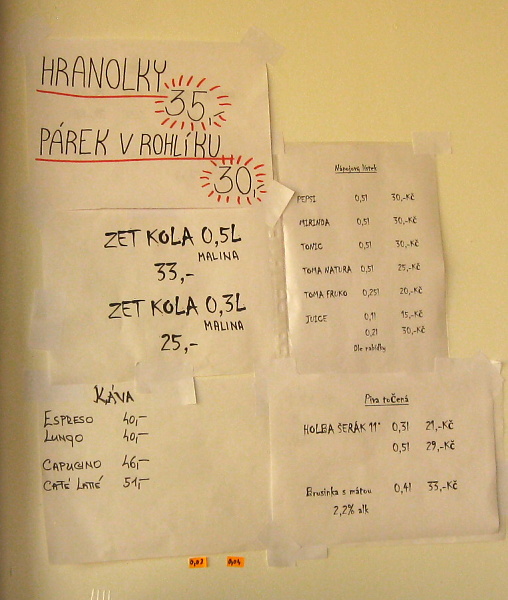 HRANOLKY
35,-
PÁREK V ROHLÍKU
30,-
ZET KOLA 0,5L
MALINA
33,-
ZET KOLA 0,3L
MALINA
25,-
KÁVA
ESPRESO 40,-
LUNGO 40,-
CAPUCINO 46,-
CAFFÉ LATTÉ 51,-
Nápojový lístek
PEPSI 0,5l 30,-KČ
MIRINDA 0,5l 30,-KČ
TONIC 0,5l 30,-KČ
TOMA NATURA 0,5l 25,-KČ
TOMA FRUKO 0,25l 20,-KČ
JUICE 0,1l 15,-KČ
0,2l 30,-KČ
Dle nabídky
Piva točená
HOLBA ŠERÁK 11° 0,3l 21,-KČ
0,5l 29,-KČ
Brusinka s mátou 0,4l 33,-KČ
2,2% alk